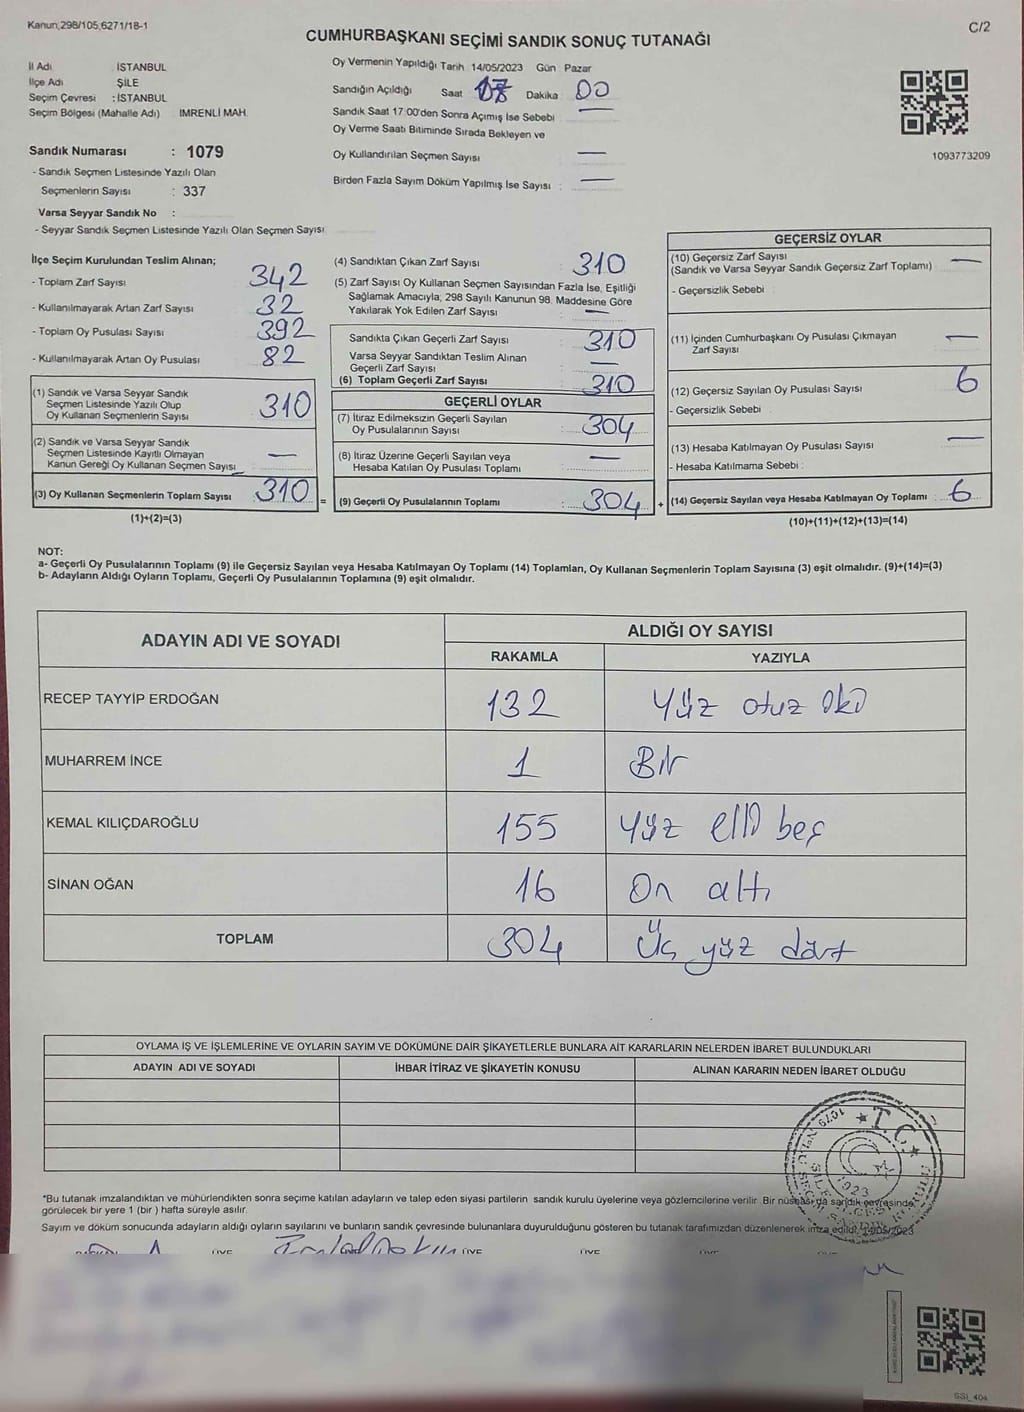 Kanun;298/105,6271/18-1
C/2
CUMHURBAŞKANI SEÇİMİ SANDIK SONUÇ TUTANAĞI
İl Adı İSTANBUL
İlçe Adı ŞİLE
Seçim Çevresi : İSTANBUL
Seçim Bölgesi (Mahalle Adı) IMRENLİ MAH.
Sandık Numarası : 1079
- Sandık Seçmen Listesinde Yazılı Olan
Seçmenlerin Sayısı : 337
Varsa Seyyar Sandık No :
- Seyyar Sandık Seçmen Listesinde Yazılı Olan Seçmen Sayısı
Oy Vermenin Yapıldığı Tarih 14/05/2023 Gün Pazar
Sandığın Açıldığı Saat Dakika 00
Sandık Saat 17:00'den Sonra Açımış İse Sebebi —
Oy Verme Saati Bitiminde Sırada Bekleyen ve
Oy Kullandırılan Seçmen Sayısı —
Birden Fazla Sayım Döküm Yapılmış İse Sayısı : —
1093773209
İlçe Seçim Kurulundan Teslim Alınan;
- Toplam Zarf Sayısı 342
- Kullanılmayarak Artan Zarf Sayısı 32
- Toplam Oy Pusulası Sayısı 392
- Kullanılmayarak Artan Oy Pusulası 82
(1) Sandık ve Varsa Seyyar Sandık
Seçmen Listesinde Yazılı Olup
Oy Kullanan Seçmenlerin Sayısı 310
(2) Sandık ve Varsa Seyyar Sandık
Seçmen Listesinde Kayıtlı Olmayan
Kanun Gereği Oy Kullanan Seçmen Sayısı —
(3) Oy Kullanan Seçmenlerin Toplam Sayısı 310 =
(1)+(2)=(3)
(4) Sandıktan Çıkan Zarf Sayısı 310
(5) Zarf Sayısı Oy Kullanan Seçmen Sayısından Fazla İse, Eşitliği
Sağlamak Amacıyla; 298 Sayılı Kanunun 98. Maddesine Göre
Yakılarak Yok Edilen Zarf Sayısı : —
Sandıkta Çıkan Geçerli Zarf Sayısı : 310
Varsa Seyyar Sandıktan Teslim Alınan
Geçerli Zarf Sayısı : —
(6) Toplam Geçerli Zarf Sayısı : 310
GEÇERLİ OYLAR
(7) İtiraz Edilmeksizin Geçerli Sayılan
Oy Pusulalarının Sayısı : 304
(8) İtiraz Üzerine Geçerli Sayılan veya
Hesaba Katılan Oy Pusulası Toplamı —
(9) Geçerli Oy Pusulalarının Toplamı : 304 +
GEÇERSİZ OYLAR
(10) Geçersiz Zarf Sayısı —
(Sandık ve Varsa Seyyar Sandık Geçersiz Zarf Toplamı)
- Geçersizlik Sebebi
(11) İçinden Cumhurbaşkanı Oy Pusulası Çıkmayan
Zarf Sayısı —
(12) Geçersiz Sayılan Oy Pusulası Sayısı 6
- Geçersizlik Sebebi :
(13) Hesaba Katılmayan Oy Pusulası Sayısı —
- Hesaba Katılmama Sebebi :
(14) Geçersiz Sayılan veya Hesaba Katılmayan Oy Toplamı 6
(10)+(11)+(12)+(13)=(14)
NOT:
a- Geçerli Oy Pusulalarının Toplamı (9) ile Geçersiz Sayılan veya Hesaba Katılmayan Oy Toplamı (14) Toplamları, Oy Kullanan Seçmenlerin Toplam Sayısına (3) eşit olmalıdır. (9)+(14)=(3)
b- Adayların Aldığı Oyların Toplamı, Geçerli Oy Pusulalarının Toplamına (9) eşit olmalıdır.
ADAYIN ADI VE SOYADI ALDIĞI OY SAYISI
RAKAMLA YAZIYLA
RECEP TAYYİP ERDOĞAN 132 Yüz otuz iki
MUHARREM İNCE 1 Bir
KEMAL KILIÇDAROĞLU 155 Yüz elli beş
SİNAN OĞAN 16 On altı
TOPLAM 304 Üç yüz dört
OYLAMA İŞ VE İŞLEMLERİNE VE OYLARIN SAYIM VE DÖKÜMÜNE DAİR ŞİKAYETLERLE BUNLARA AİT KARARLARIN NELERDEN İBARET BULUNDUKLARI
ADAYIN ADI VE SOYADI İHBAR İTİRAZ VE ŞİKAYETİN KONUSU ALINAN KARARIN NEDEN İBARET OLDUĞU
T.C.
1923
*Bu tutanak imzalandıktan ve mühürlendikten sonra seçime katılan adayların ve talep eden siyasi partilerin sandık kurulu üyelerine veya gözlemcilerine verilir. Bir nüshası da sandık çevresinde
görülecek bir yere 1 (bir ) hafta süreyle asılır.
Sayım ve döküm sonucunda adayların aldığı oyların sayılarını ve bunların sandık çevresinde bulunanlara duyurulduğunu gösteren bu tutanak tarafımızdan düzenlenerek imza edildi. 14/05/2023
SSI_404